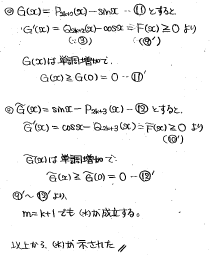 ◎ G(x) = P₂ₖ₊₃(x) − sinx − ⑪ とすると
G'(x) = Q₂ₖ₊₂(x) − cosx = F(x) ≥ 0 より
(∵③) (⑨')
G(x)は単調増加で
G(x) ≥ G(0) = 0 − ⑪'
◎ G̃(x) = sinx − P₂ₖ₊₃(x) − ⑫ とすると、
G̃'(x) = cosx − Q₂ₖ₊₂(x) = F̃(x) ≥ 0 より
(⑩')
G̃(x)は単調増加で
G̃(x) ≥ G̃(0) = 0 − ⑫'
⑨'〜⑫'より、
m=k+1でも(*)が成立する。
以上から、(*)が示された //